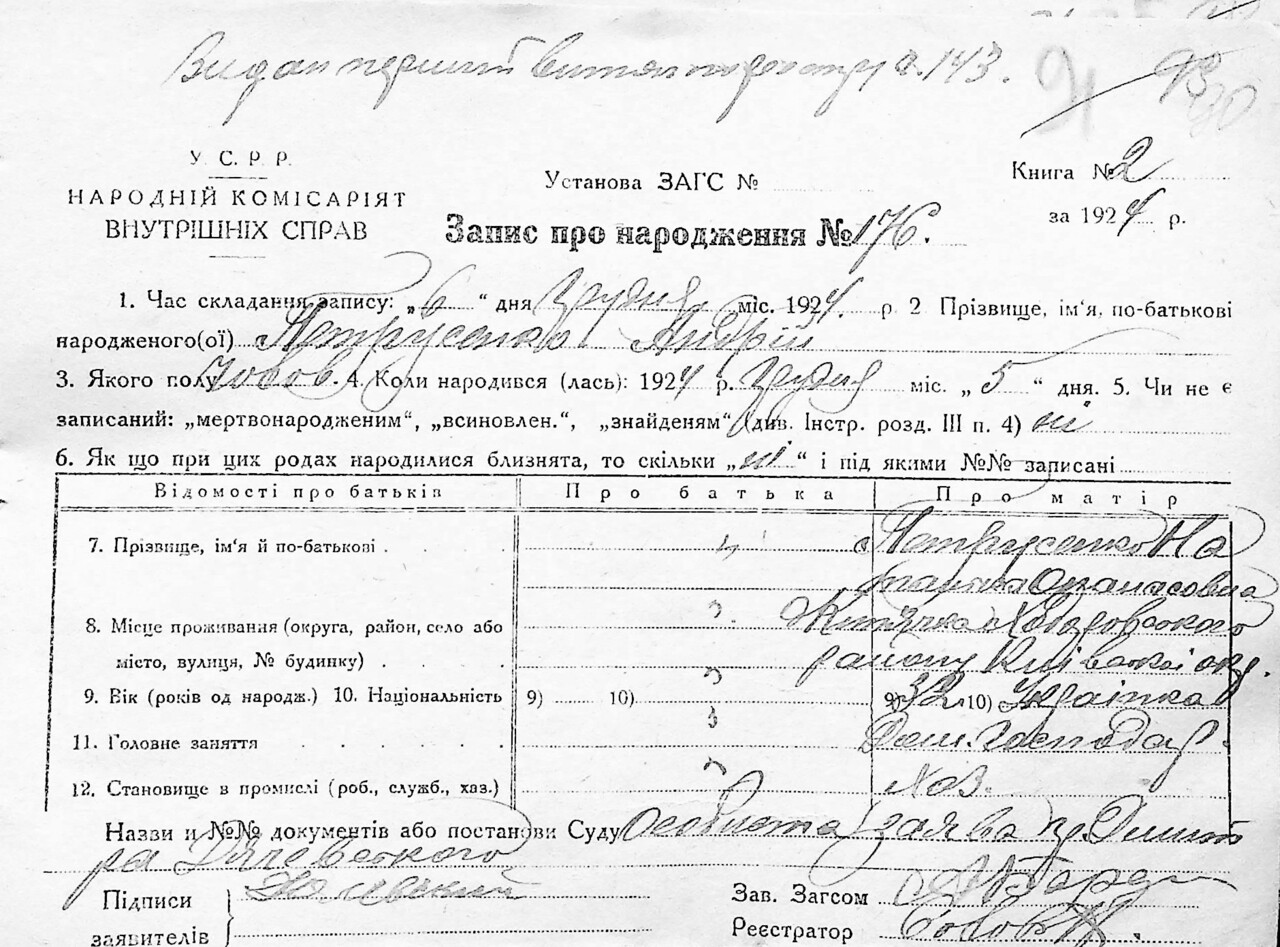 Видан перший витяг по реєстру з. 143.
91 93
У. С. Р. Р.
НАРОДНІЙ КОМІСАРІЯТ
ВНУТРІШНІХ СПРАВ
Установа ЗАГС №
Книга № 2
за 1924 р.
Запис про народження № 176.
1. Час складання запису: „6“ дня Грудня міс. 1924. р 2 Прізвище, ім'я, по-батькові
народженого(ої) Петрусенко Андрій
3. Якого полу Чолов. 4. Коли народився (лась): 1924 р. Грудня міс. „5“ дня. 5. Чи не є
записаний: „мертвонародженим“, „всиновлен.“, „знайденям“ (див. Інстр. розд. III п. 4) ні
6. Як що при цих родах народилися близнята, то скільки „ні“ і під якими №№ записані
Відомості про батьків Про батька Про матір
7. Прізвище, ім'я й по-батькові Петрусенко На
талка Опанасовна
8. Місце проживання (округа, район, село або
місто, вулиця, № будинку)
району Київської окр.
9. Вік (років од народж.) 10. Національність 9) 10) 9) 32 10) Українка
11. Головне заняття Дом. Господар.
12. Становище в промислі (роб., служб., хаз.) Хоз.
Назви и №№ документів або постанови Суду Особиста заява гр. Дмит
ра
Підписи
заявителів
Зав. Загсом
Реєстратор